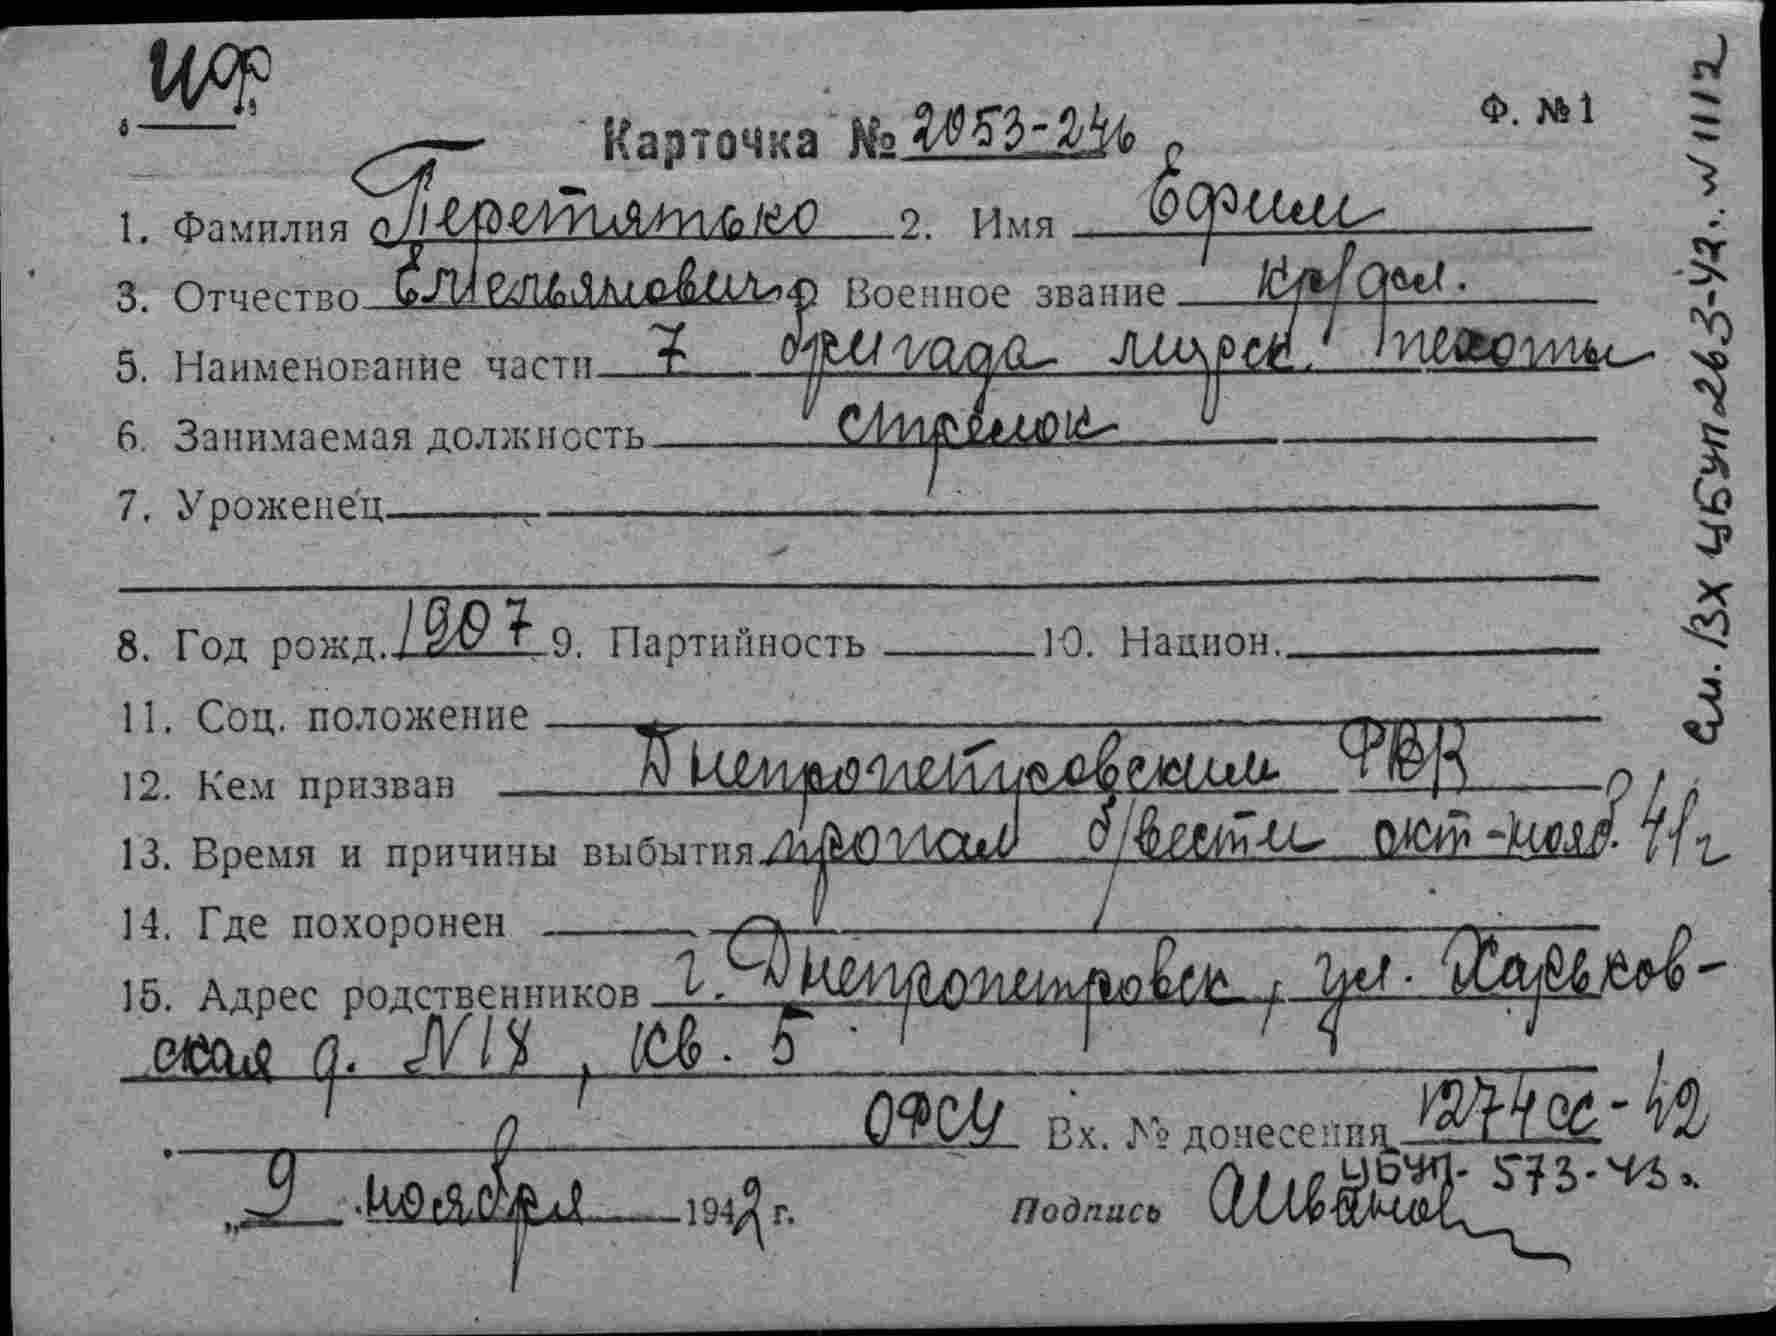 Ф. №1
Карточка № 2053-246
1. Фамилия Перетятько 2. Имя Ефим
3. Отчество Емельянович Военное звание кр/фл.
5. Наименование части 7 бригада морск. пехоты
6. Занимаемая должность стрелок
7. Уроженец
8. Год рожд. 1907 9. Партийность 10. Национ.
11. Соц. положение
12. Кем призван Днепропетровским РВК
13. Время и причины выбытия пропал б/вести окт-нояб. 41 г
14. Где похоронен
15. Адрес родственников г. Днепропетровск, ул. Харьков-
ская д. N18, кв. 5
Вх. № донесения 1274сс-42
УБУП- 573-43.
„9 ноября 1942 г. Подпись АИванов
см. вх УБУП 263-47г. N 1112